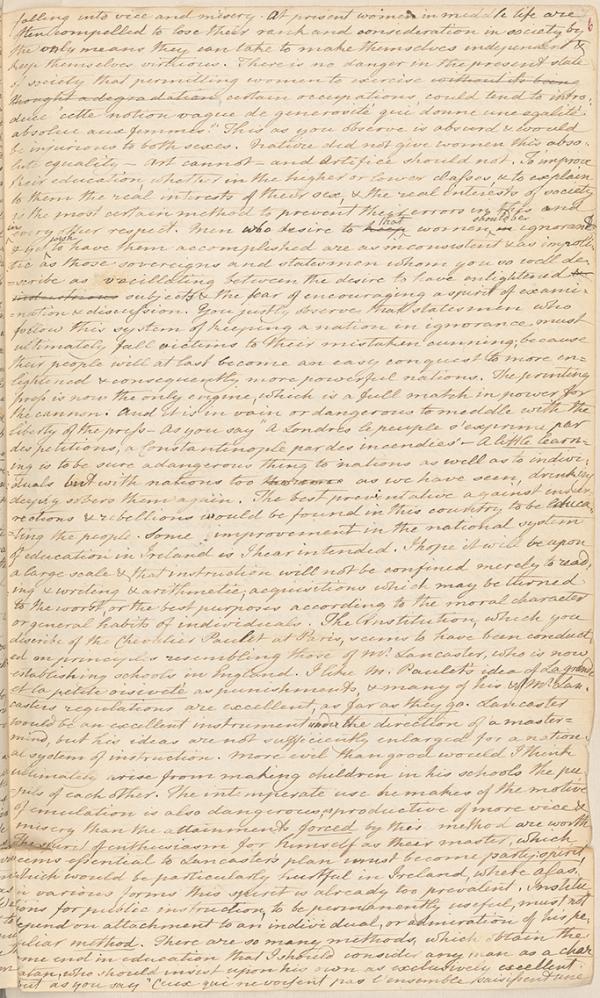 falling into vice and misery. At present women in middle life are
often compelled to lose their rank and consideration in society by
the only means they can take to make themselves independent &
keep themselves virtuous. There is no danger in the present state
of society that permitting women to exercise without its being
thought a degradation certain occupations could tend to intro-
duce "cette notion vague de generosité qui donne une egalité
absolue aux femmes." This as you observe is absurd & would
be injurious to both sexes. Nature did not give women this abso-
lute equality – Art cannot – and Artifice should not. To improve
their education whether in the higher or lower classes & to explain
to them the real interests of their sex, & the real interests of society
is the most certain method to prevent their errors in this and
in every other respect. Men who desire to keep that women in should be ignorant
& but to wish to have them accomplished are as inconsistent & as impoli-
tic as those sovereigns and statesmen whom you so well de-
scribe as vacillating between the desire to have enlightened &
industrious subjects & the fear of encouraging a spirit of exami-
nation & discussion. You justly observe that statesmen who
follow this system of keeping a nation in ignorance must
ultimately fall victims to their mistaken cunning; because
their people will at last become an easy conquest to more en-
lightened & consequently more powerful nations. The printing
press is now the only engine, which is a full match in power for
the cannon. And it is in vain or dangerous to meddle with the
liberty of the press – As you say "A Londres le peuple s'exprime par
des petitions, a Constantinople par des incendies" – A little learn-
ing is to be sure a dangerous thing to nations as well as to indivi-
duals but with nations too as we have seen, drinking
deeply sobers them again. The best preventative against insur-
rections & rebellions would be found in this country to be educa-
ting the people. Some improvement in the national system
of education in Ireland is I hear intended. I hope it will be upon
a large scale & that instruction will not be confined merely to read-
ing & writing & arithmetic; acquisitions which may be turned
to the worst, or the best purposes according to the moral character
or general habits of individuals. The Institution, which you
describe of the Chevalier Paulet at Paris, seems to have been conduct-
ed on principles resembling those of Mr. Lancaster, who is now
establishing schools in England. I like M. Paulet's idea of La grande
et la petite oisiveté as punishments, & many of his & of Mr. Lan-
casters regulations are excellent, as far as they go. Lancaster
would be an excellent instrument under the direction of a master-
mind, but his ideas are not sufficiently enlarged for a nation-
al system of instruction. More evil than good would I think
ultimately arise from making children in his schools the pu-
pils of each other. The intemperate use he makes of the motive
of emulation is also dangerous, productive of more vice &
misery than the attainments forced by this method are worth
The spirit of enthusiasm for himself as their master, which
seems essential to Lancaster's plan must become party spirit,
which would be particularly hurtful in Ireland, where alas,
in various forms this spirit is already too prevalent. Institu-
tions for public instruction, to be permanently useful, must not
depend on attachment to an individual, or admiration of his pe-
culiar method. There are so many methods, which obtain the
same end in education that I should consider any man as a char-
latan, who should insist upon his own as exclusively excellent.
But as you say "Ceux qui ne voient pas l'ensemble saisissent une